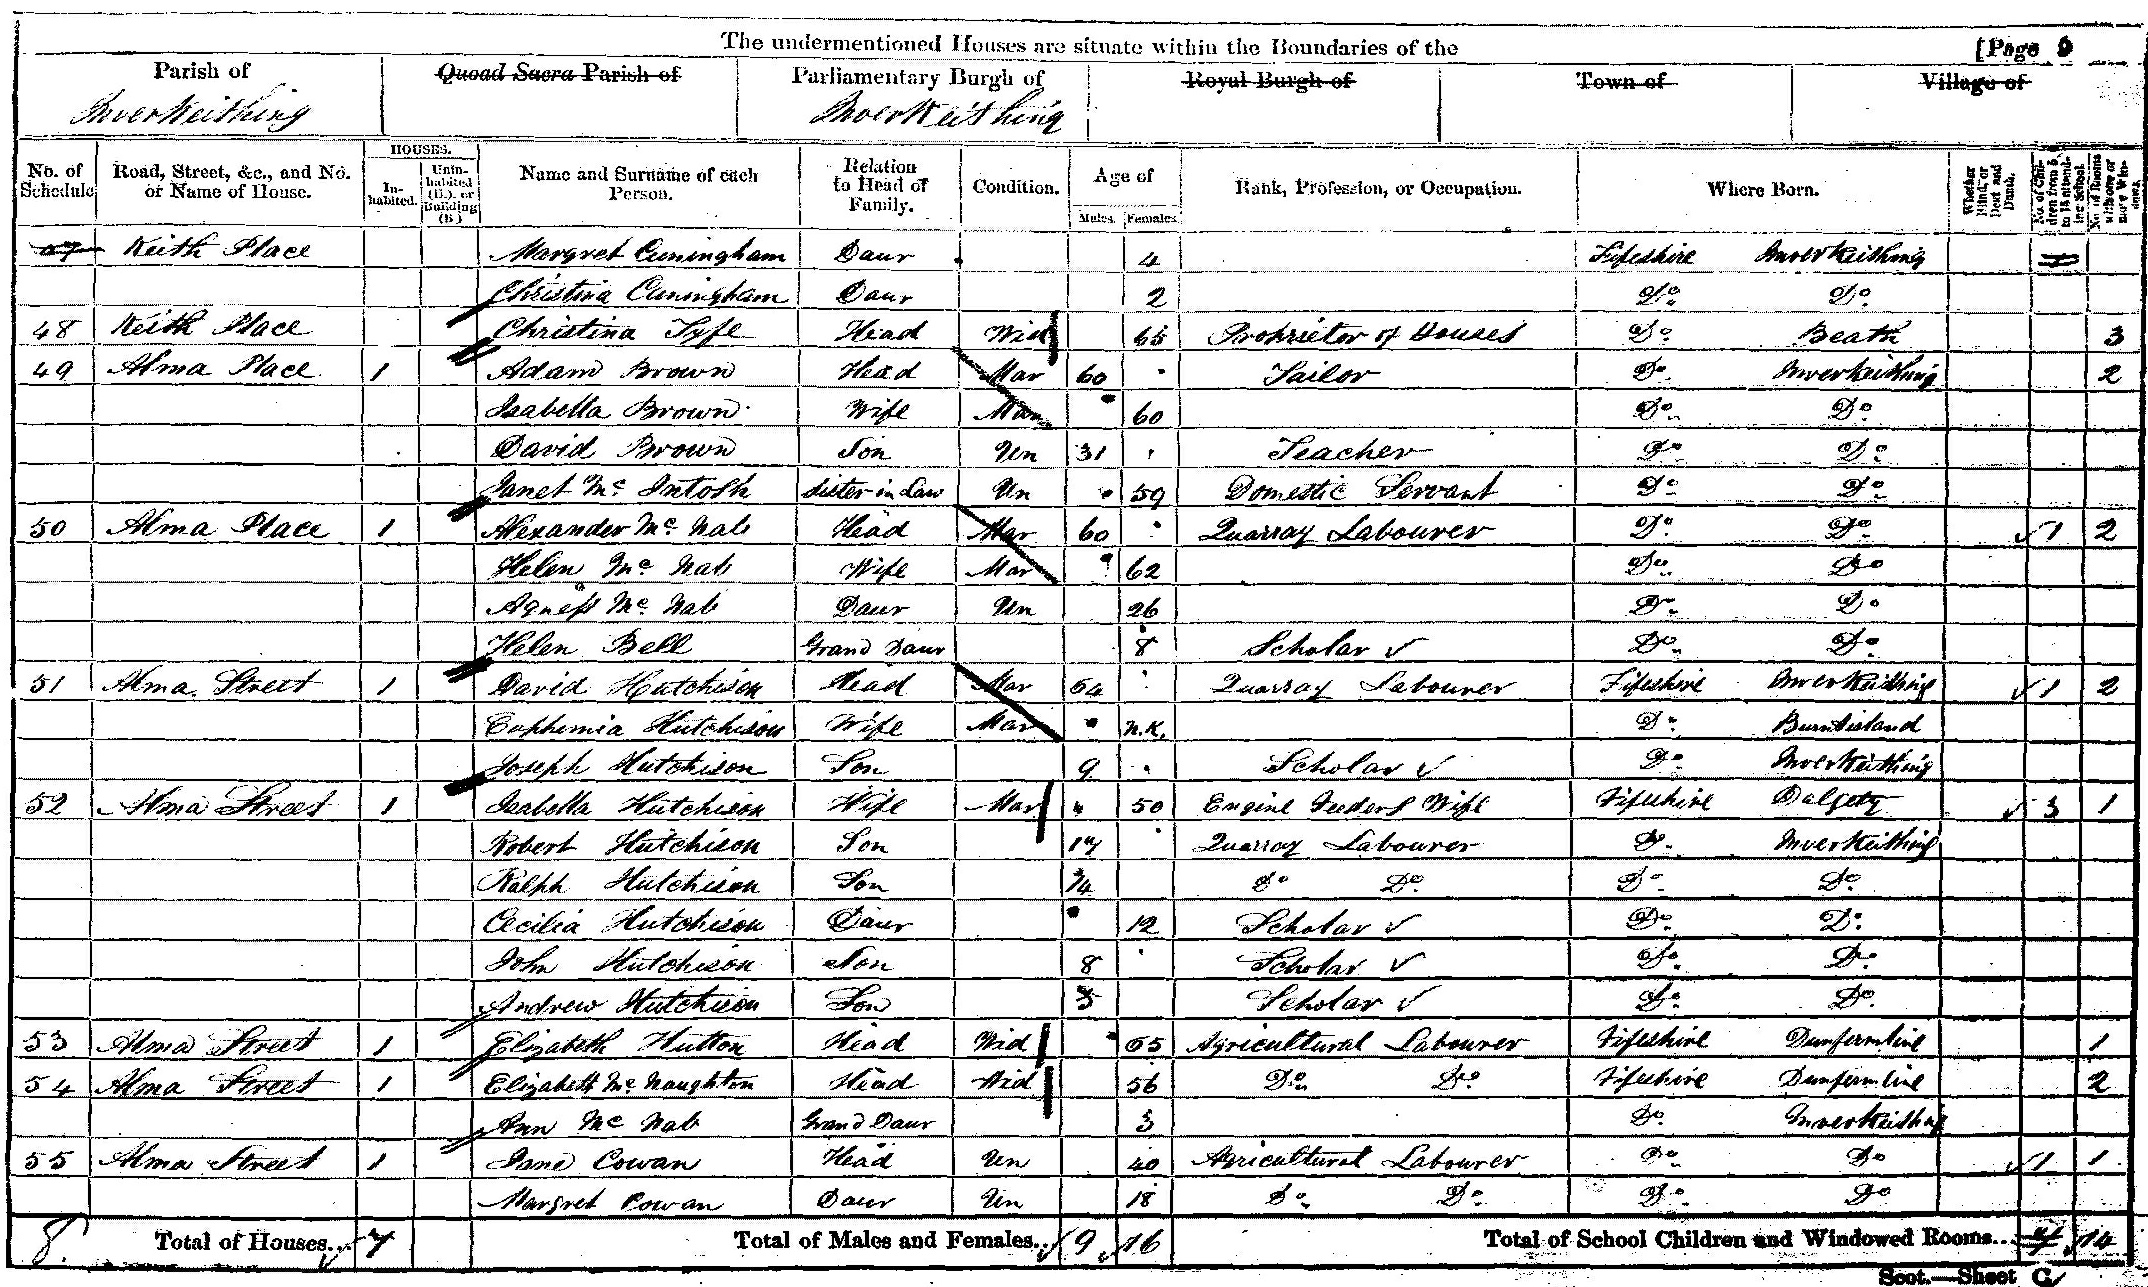 The undermentioned Houses are situate within the Boundaries of the [Page 6
Parish of Quoad Sacra Parish of Parliamentary Burgh of Royal Burgh of Town of Village of
Inverkeithing Inverkeithing
No. of Schedule Road, Street, &c., and No. or Name of House. HOUSES. In-habited. Unin-habited (U.), or Building (B.) Name and Surname of each Person. Relation to Head of Family. Condition. Age of Males. Females. Rank, Profession, or Occupation. Where Born. Whether Blind, or Deaf and Dumb. No. of Chil-dren from 5 to 15 attend-ing School. No. of Rooms with one or more Win-dows.
47 Keith Place Margret Cuningham Daur 4 Fifeshire Inverkeithing
Christina Cuningham Daur 2 Do. Do.
48 Keith Place Christina Fyfe Head Wid 65 Proprietor of Houses Do. Beath 3
49 Alma Place 1 Adam Brown Head Mar 60 Tailor Do. Inverkeithing 2
Isabella Brown Wife Mar 60 Do. Do.
David Brown Son Un 31 Teacher Do. Do.
Janet Mc Intosh Sister in Law Un 59 Domestic Servant Do. Do.
50 Alma Place 1 Alexander Mc Nab Head Mar 60 Quarray Labourer Do. Do. ✓ 1 2
Helen Mc Nab Wife Mar 62 Do. Do.
Agness Mc Nab Daur Un 26 Do. Do.
Helen Bell Grand Daur 8 Scholar ✓ Do. Do.
51 Alma Street 1 David Hutchison Head Mar 54 Quarray Labourer Fifeshire Inverkeithing ✓ 1 2
Euphemia Hutchison Wife Mar N.K. Do. Burntisland
Joseph Hutchison Son 9 Scholar ✓ Do. Inverkeithing
52 Alma Street 1 Isabella Hutchison Wife Mar 50 Engine Feeders Wife Fifeshire Dalgety ✓ 3 1
Robert Hutchison Son 17 Quarray Labourer Do. Inverkeithing
Ralph Hutchison Son 14 Do Do. Do. Do.
Cecilia Hutchison Daur 12 Scholar ✓ Do. Do.
John Hutchison Son 8 Scholar ✓ Do. Do.
Andrew Hutchison Son 5 Scholar ✓ Do. Do.
53 Alma Street 1 Elizabeth Hutton Head Wid 65 Agricultural Labourer Fifeshire Dunfermline 1
54 Alma Street 1 Elizabeth Mc Naughton Head Wid 56 Do. Do. Fifeshire Dunfermline 2
Ann Mc Nab Grand Daur 3 Do. Inverkeithing
55 Alma Street 1 Jane Cowan Head Un 40 Agricultural Labourer Do. Do ✓ 1 1
Margret Cowan Daur Un 18 Do. Do. Do. Do
8. Total of Houses... 7 Total of Males and Females... 9 16 Total of School Children and Windowed Rooms... 14
Scot.—Sheet G